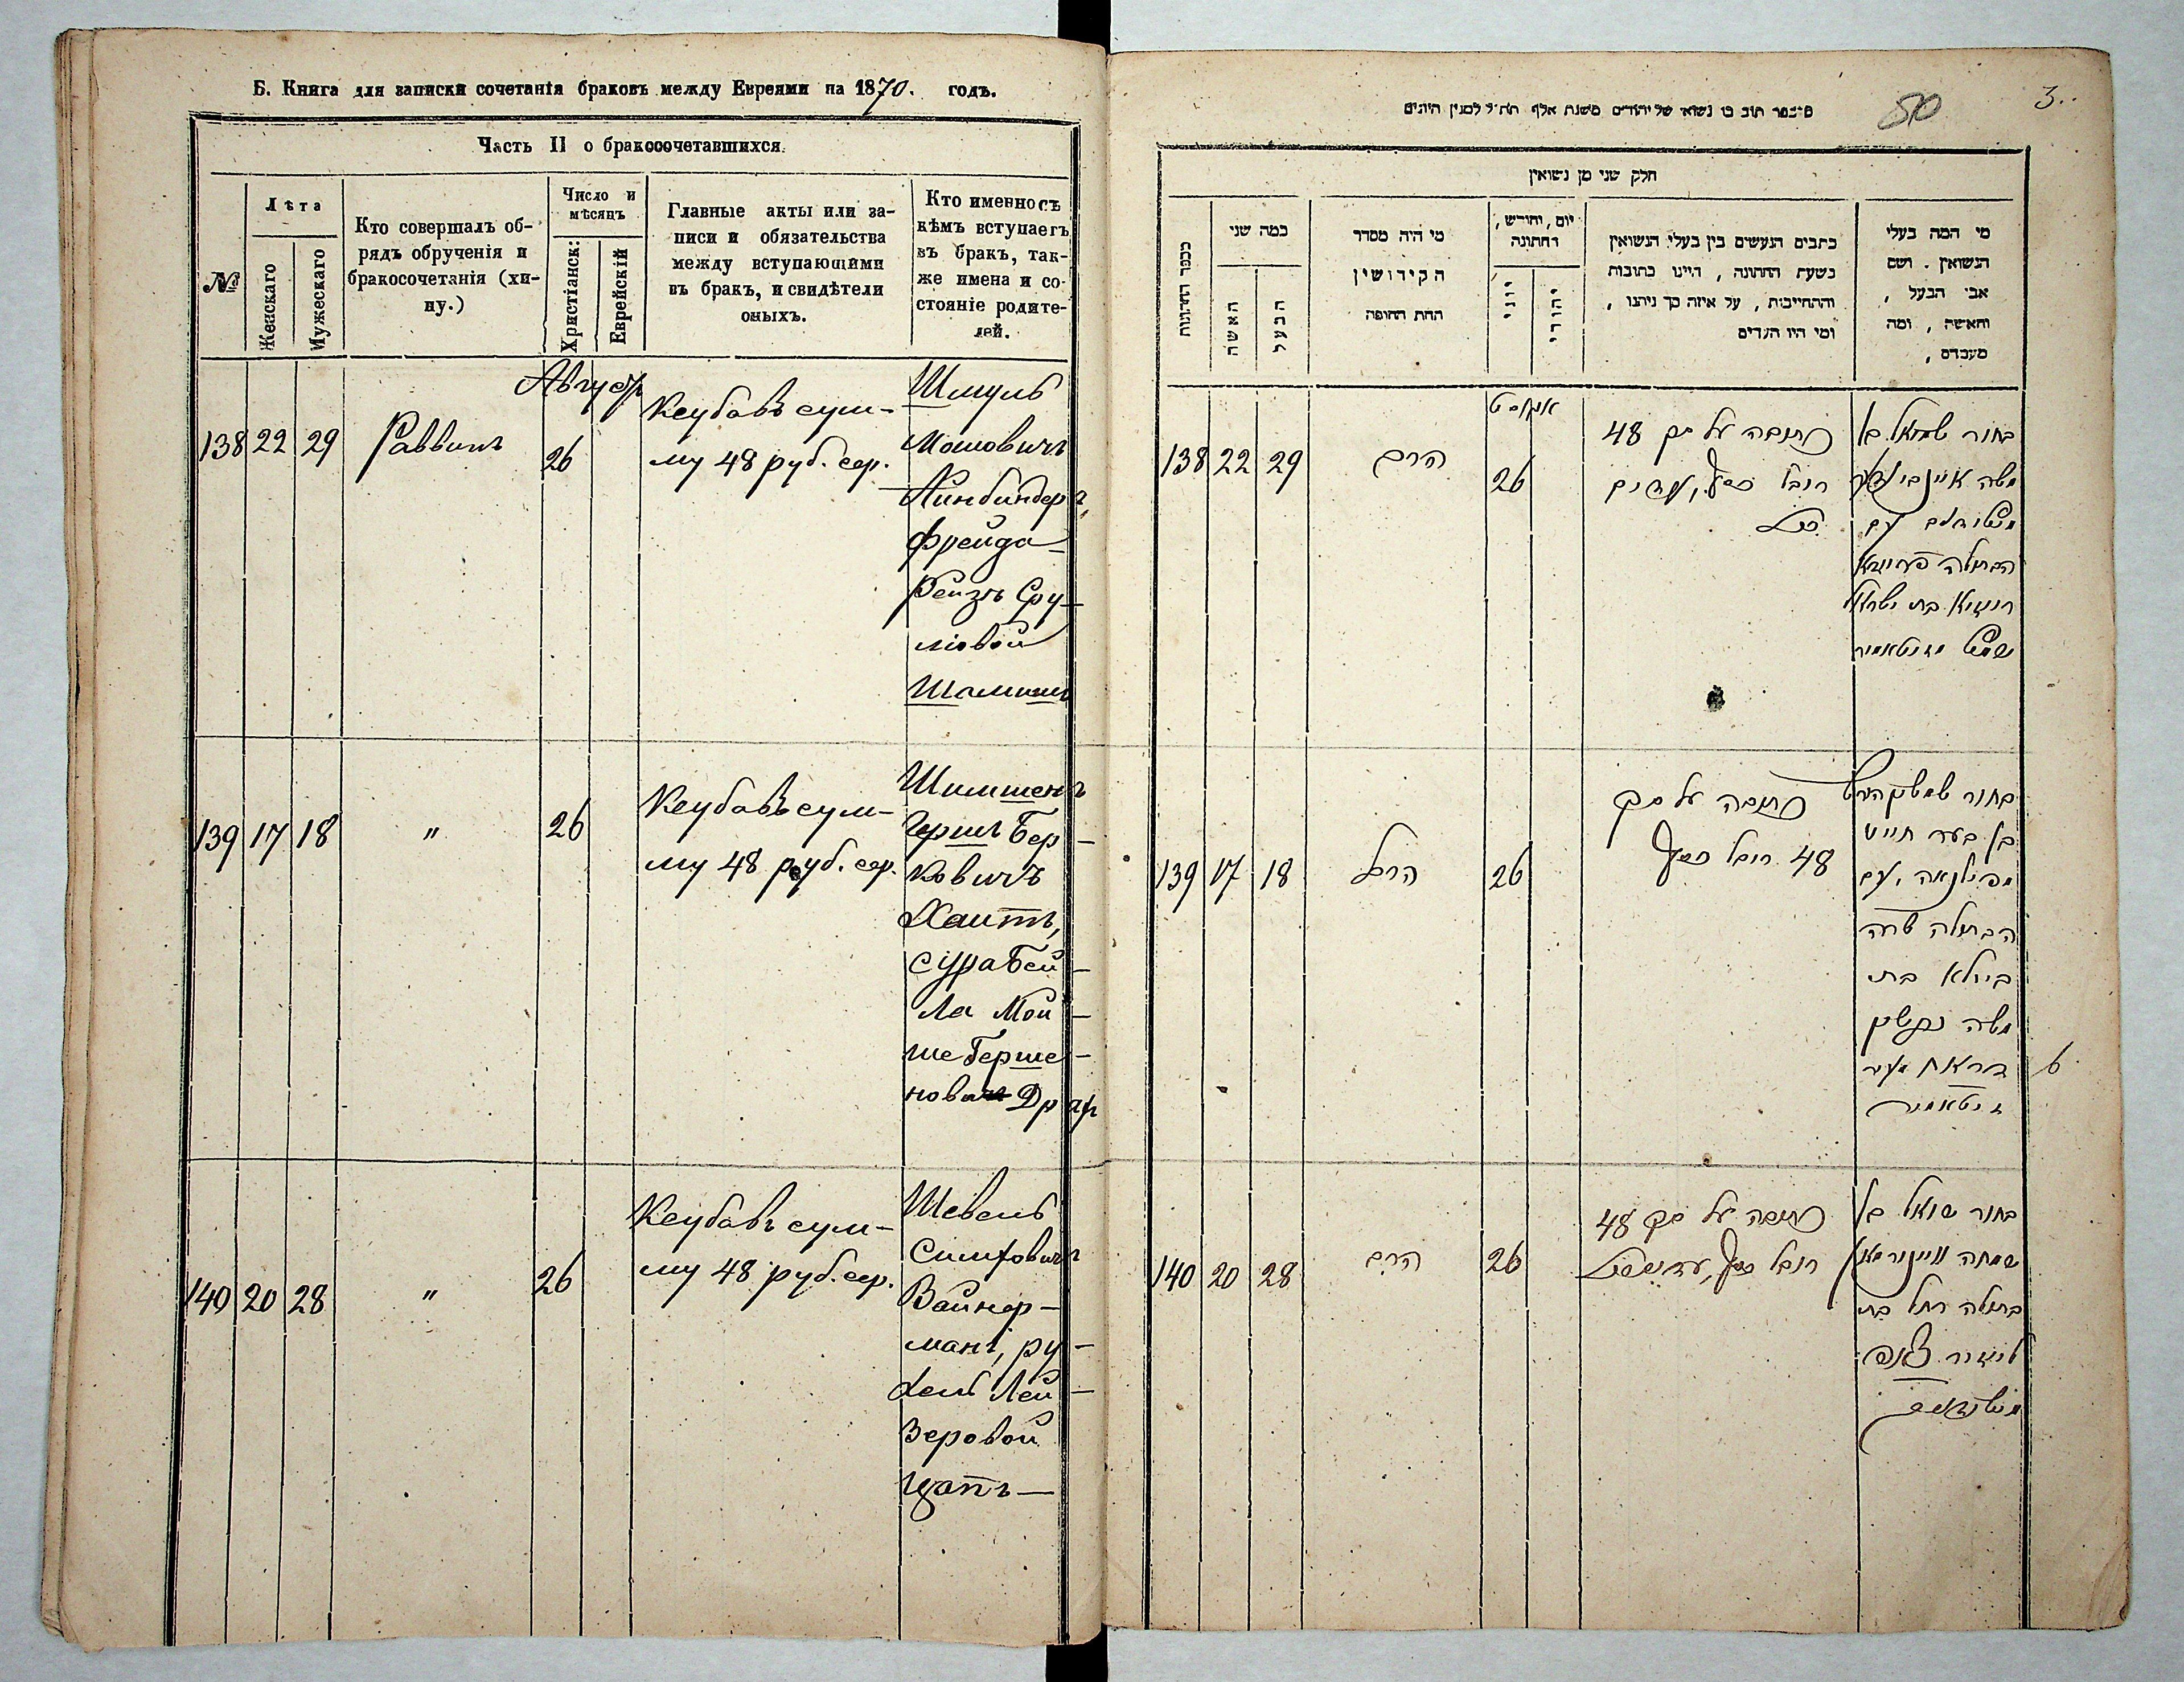 Б. Книга для записки сочетанія браковъ между Евреями на 1870. годъ.
Часть II о бракосочетавшихся.
№
Лѣта
Женскаго
Мужескаго
Кто совершалъ об-
рядъ обрученія и
бракосочетанія (хи-
пу.)
Число и
мѣсяцъ
Христіанск:
Еврейскій
Главные акты или за-
писи и обязательства
между вступающими
въ бракъ, и свидѣтели
оныхъ.
Кто именно съ
кѣмъ вступаетъ
въ бракъ, так-
же имена и со-
стояніе родите-
лей.
Августъ
138 22 29 Раввинъ 26
Кеубавъ сум-
му 48 руб. сер.
Шмуль
Мошовичъ
Айнбиндеръ,
Фрейда-
Рейзъ Сру-
лiовой
Шамишъ
139 17 18 " 26
Кеубавъ сум-
му 48 руб. сер.
Шимшенъ
Гершъ Бер-
ковичъ
Хаитъ,
Сура Бей-
ла Мой-
ше Герше-
новичъ
140 20 28 " 26
Кеубавъ сум-
му 48 руб. сер.
Шевель
Симховичъ
Вайнер-
манъ, ру-
хель Лей-
зеровой
Цапъ
50
3.
חלק שני מן נשואין
כמה שני
האשה
הבעל
מי היה מסדר
הקידושין
תחת החופה
יום, וחודש,
דחתונה
יוני
יהודי
כתבים הנעשים בין בעלי הנשואין
בשעת החתונה, היינו כתובות
והתחייבות, על איזה סך ניתנו,
ומי היו העדים
מי המה בעלי
הנשואין. ושם
אבי הבעל,
והאשה, ומה
מעמדם,
אווגוסט
138 22 29 הרב 26
כתובה על סך 48
רובל כסף, עדים
בחור שמואל בן
משה איינבינדער
עם
הבתולה פריידא
רייזא בת ישראל
שמש מזיטאמיר
139 17 18 הרב 26
כתובה על סך
48 רובל כסף
בחור שמשון הירש
בן בער חייט
עם
הבתולה שרה
ביילא בת
משה
זיטאמיר
6
140 20 28 הרב 26
כתובה על סך 48
רובל כסף,
בחור שואל בן
שמחה וויינערמאן
בתולה רחל בת
ליזער צאפ